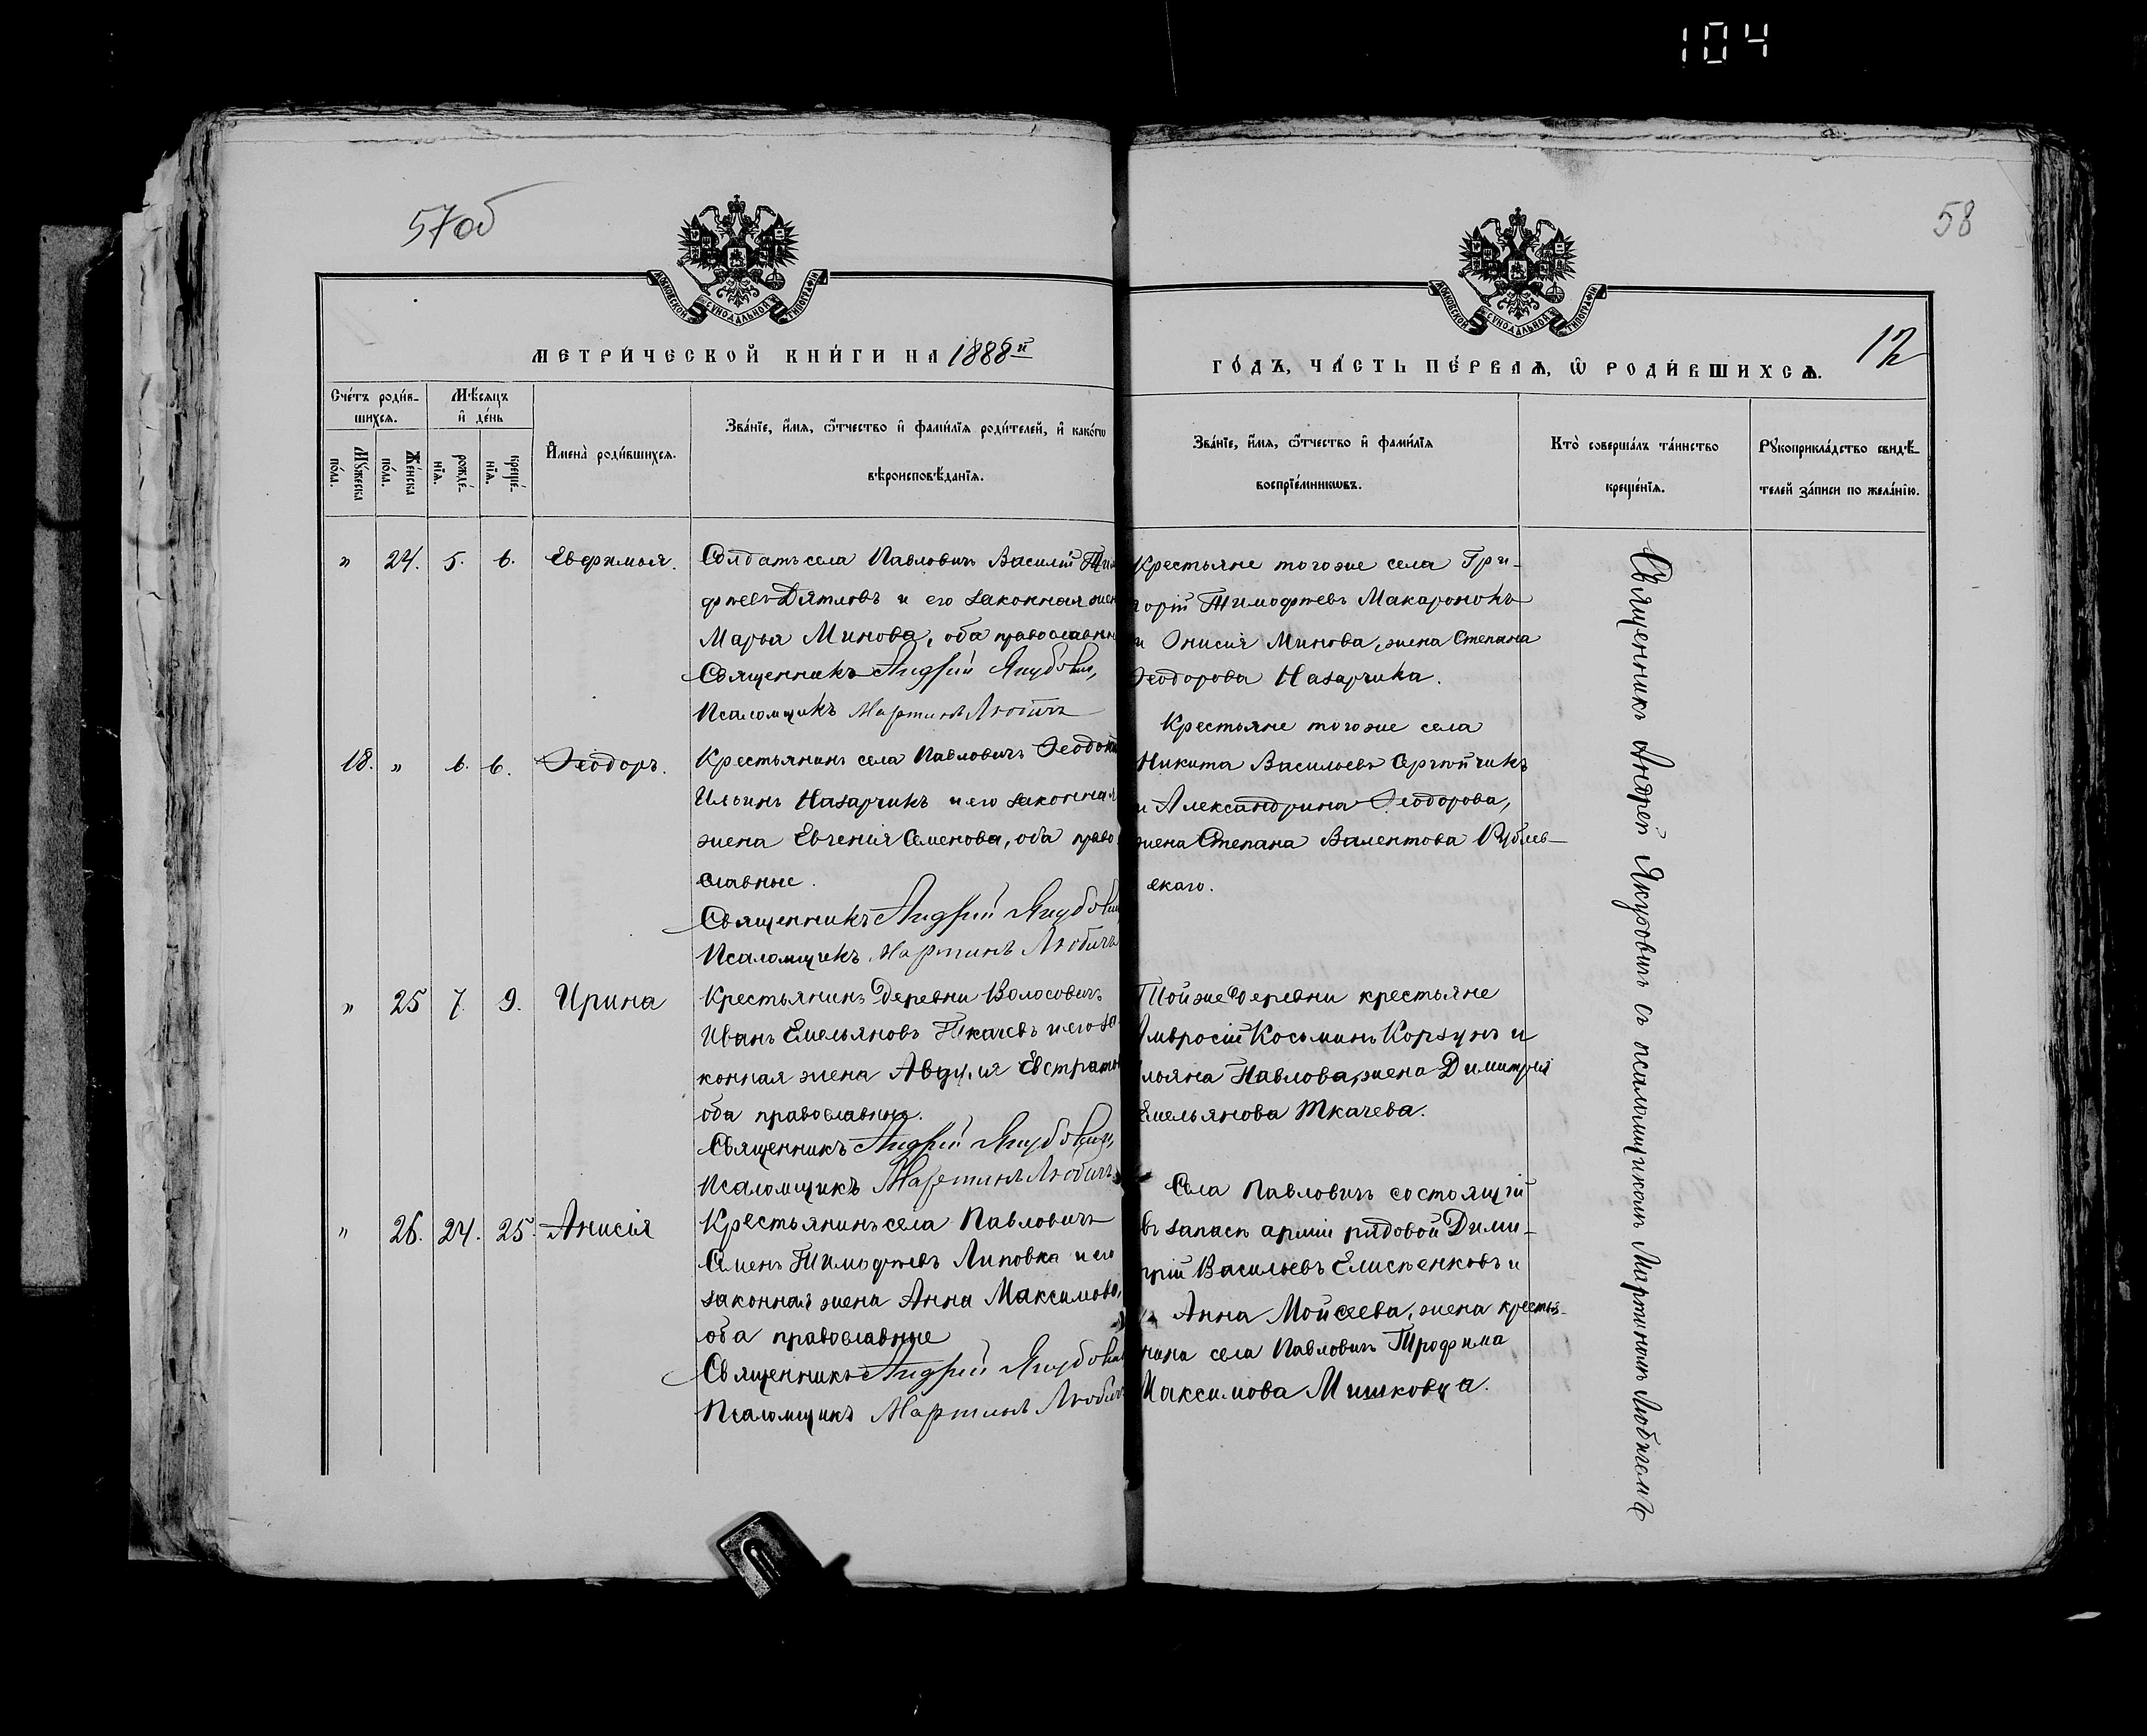 104
57об
58
МОСКОВСКОЙ СѴНОДАЛЬНОЙ ТИПОГРАФІИ
МОСКОВСКОЙ СѴНОДАЛЬНОЙ ТИПОГРАФІИ
МЕТРИ́ЧЕСКОЙ КНИ́ГИ НА 1888й
ГО́ДЪ, ЧА́СТЬ ПЕ́РВАѦ, Ѡ҆ РОДИ́ВШИХСѦ.
12
Сче́тъ роди́в-
шихсѧ.
Мꙋ́жеска
по́ла.
Же́нска
по́ла.
Мѣ́сяцъ
и҆ де́нь
рожде́-
нїѧ.
креще́-
нїѧ.
И҆мена̀ роди́вшихсѧ.
Зва́нїе, и҆́мѧ, ѻ҆́тчество и҆ фами́лїѧ роди́телей, и҆ како́гѡ
вѣроисповѣ́данїѧ.
Зва́нїе, и҆́мѧ, ѻ҆́тчество и҆ фами́лїѧ
воспрїе́мникѡвъ.
Кто̀ соверша́лъ та́инство
креще́нїѧ.
Рꙋкоприкла́дство свидѣ́-
телей за́писи по жела́нїю.
" 24. 5. 6. Евфимья.
Солдатъ села Павловичъ Василій Тим
офеевъ Дятловъ и его законная жен
Марья Минова, оба православн
Священникъ Андрей Якубович,
Псаломщикъ Мартинъ Любичъ
Крестьяне тогоже села Гри-
горій Тимофеевъ Макаронокъ
и Онисія Минова, жена Степана
Ѳеодорова Назарчика.
18. " 6. 6. Ѳеодоръ.
Крестьянинъ села Павловичъ
Ильинъ Назарчикъ и его законная
жена Евгенія Семенова, оба право
славные.
Священникъ Андрей Якубович
Псаломщикъ Мартинъ Любичъ
Крестьяне тогоже села
Никита Васильевъ Сергейчикъ
и Александрина Ѳеодорова,
жена Степана Валентова Рублев-
скаго.
" 25 7. 9. Ирина
Крестьянинъ деревни Волосовичъ
Иванъ Емельяновъ Ткачевъ и его за
конная жена Евстратов
оба православные.
Священникъ Андрей Якубович,
Псаломщикъ Мартинъ Любичъ
Тойже деревни крестьяне
Амвросій Косьминъ Корзунъ и
льяна Павлова, жена Димитрія
Емельянова Ткачева.
" 26. 24. 25. Анисія
Крестьянинъ села Павловичъ
Семенъ Тимофеевъ Липовка и его
законная жена Анна Максимова,
оба православные
Священникъ Андрей Якубович
Псаломщикъ Мартинъ Любич
Села Павловичъ состоящій
въ запасѣ арміи рядовой Дими-
трій Васильевъ Елисѣенковъ и
Анна Мойсеева, жена крестья-
нина села Павловичъ Трофима
Максимова Мишковца.
Священникъ Андрей Якубовичъ съ псаломщикомъ Мартиномъ Любичемъ